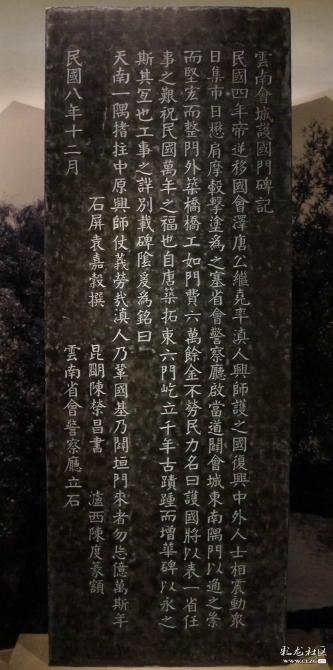 雲南會城護國門碑記
民國四年帝逆移國會澤唐公繼堯率滇人興師護之國復興中外人士相震動眾
日集市日懋肩摩轂擊塗為之塞省會警察廳啟當道闢會城東南隅門以通之崇
而堅宏而整門外築橋橋工如門費六萬餘金不勞民力名曰護國將以表一省任
事之艱祝民國萬年之福也自唐築拓東六門屹立千年古蹟踵而增華碑以永之
斯其宜也工事之詳別載碑陰爰為銘曰
天南一隅搘拄中原興師仗義勞哉滇人乃鞏國基乃闢垣門來者勿忘億萬斯年
石屏袁嘉穀撰 昆明陳榮昌書 瀘西陳度篆額
民國八年十二月 雲南省會警察廳立石
彩龙社区
www.clzg.cn